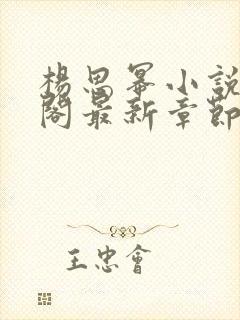 楊思冪小說
閣最新章節
王忠會